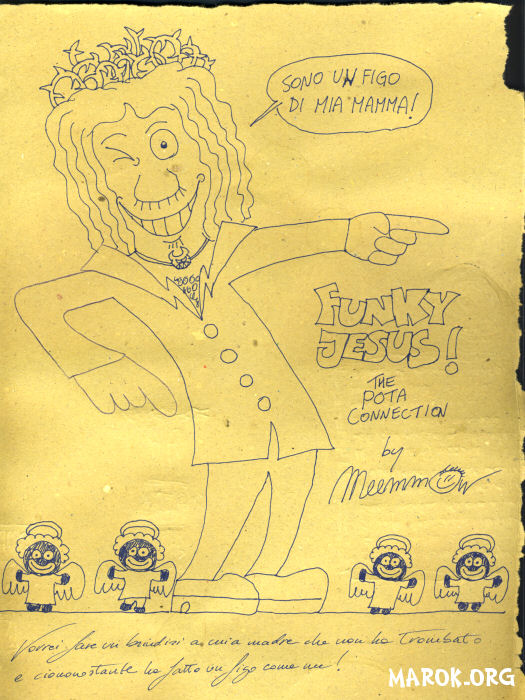 SONO UN FIGO
DI MIA MAMMA!
FUNKY
JESUS!
THE
POTA
CONNECTION
by
Meemmow
Vorrei fare un brindisi a mia madre che non ha trombato
e ciononostante ha fatto un figo come me!
MAROK.ORG